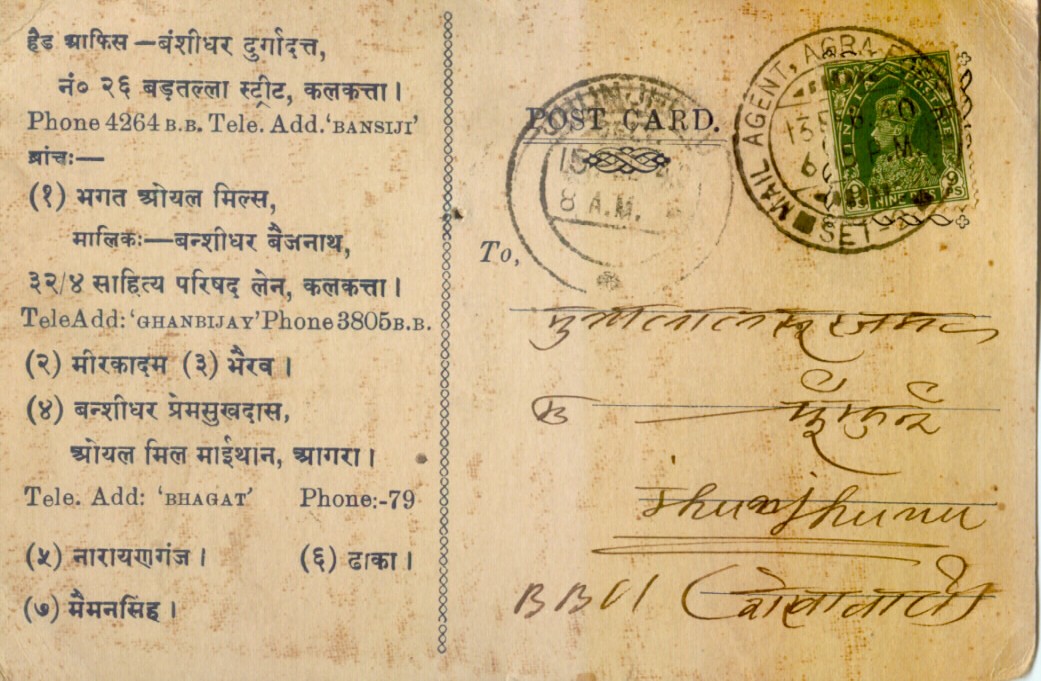 हैड आफिस—बंशीधर दुर्गादत्त,
नं० २६ बड़तल्ला स्ट्रीट, कलकत्ता।
Phone 4264 B.B. Tele. Add.'BANSIJI'
ब्रांचः—
(१) भगत ओयल मिल्स,
मालिकः—बन्शीधर बैजनाथ,
३२/४ साहित्य परिषद लेन, कलकत्ता।
TeleAdd:'GHANBIJAY'Phone 3805 B.B.
(२) मीरकादम (३) भैरव।
(४) बन्शीधर प्रेमसुखदास,
ओयल मिल माईथान, आगरा।
Tele. Add: 'BHAGAT' Phone:-79
(५) नारायणगंज। (६) ढाका।
(७) मैमनसिंह।
POST CARD.
MAIL AGENT, AGRA
SET
NINE PIES
15
8 A.M.
To,
Jhunjhunu